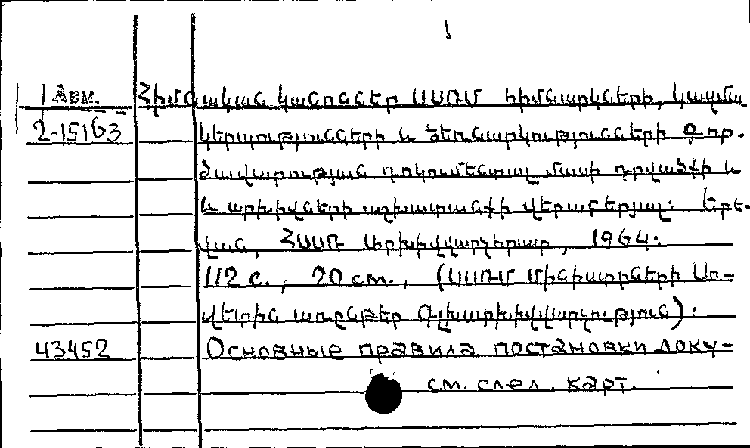 1
Арм. Հիմնական կանոններ ՍՍՌՄ հիմնարկների, կազմա
2-15163 կերպությունների և ձեռնարկությունների գոր.
ծավարության դոկումենտալ մասի դրվածքի և
և արխիվների աշխատանքի վերաբերյալ: Երե-
վան, ՀՍՍՌ Արխիվվարչություն, 1964:
112 с., 20 см., (ՍՍՌՄ Մինիստրների Սո-
վետին առընթեր Գլխարխիվվարչություն):
43452 Основные правила постановки доку-
см. след. карт.